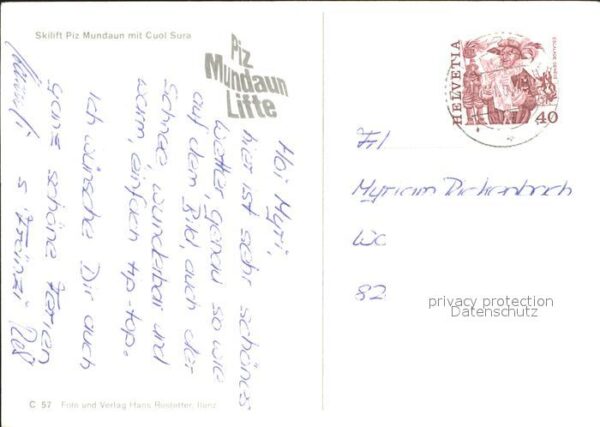 Skilift Piz Mundaun mit Cuol Sura
Piz
Mundaun
Lifte
Hoi Myri,
hier ist sehr schönes
Wetter, genau so wie
auf dem Bild, auch der
Schnee, wunderbar und
warm, einfach tip-top.
Ich wünsche Dir auch
ganz schöne Ferien
s'
C 57 Foto und Verlag Hans Rostetter, Ilanz
HELVETIA
ESCALADE GENÈVE
40
Frl
Myriam
82
privacy protection
Datenschutz